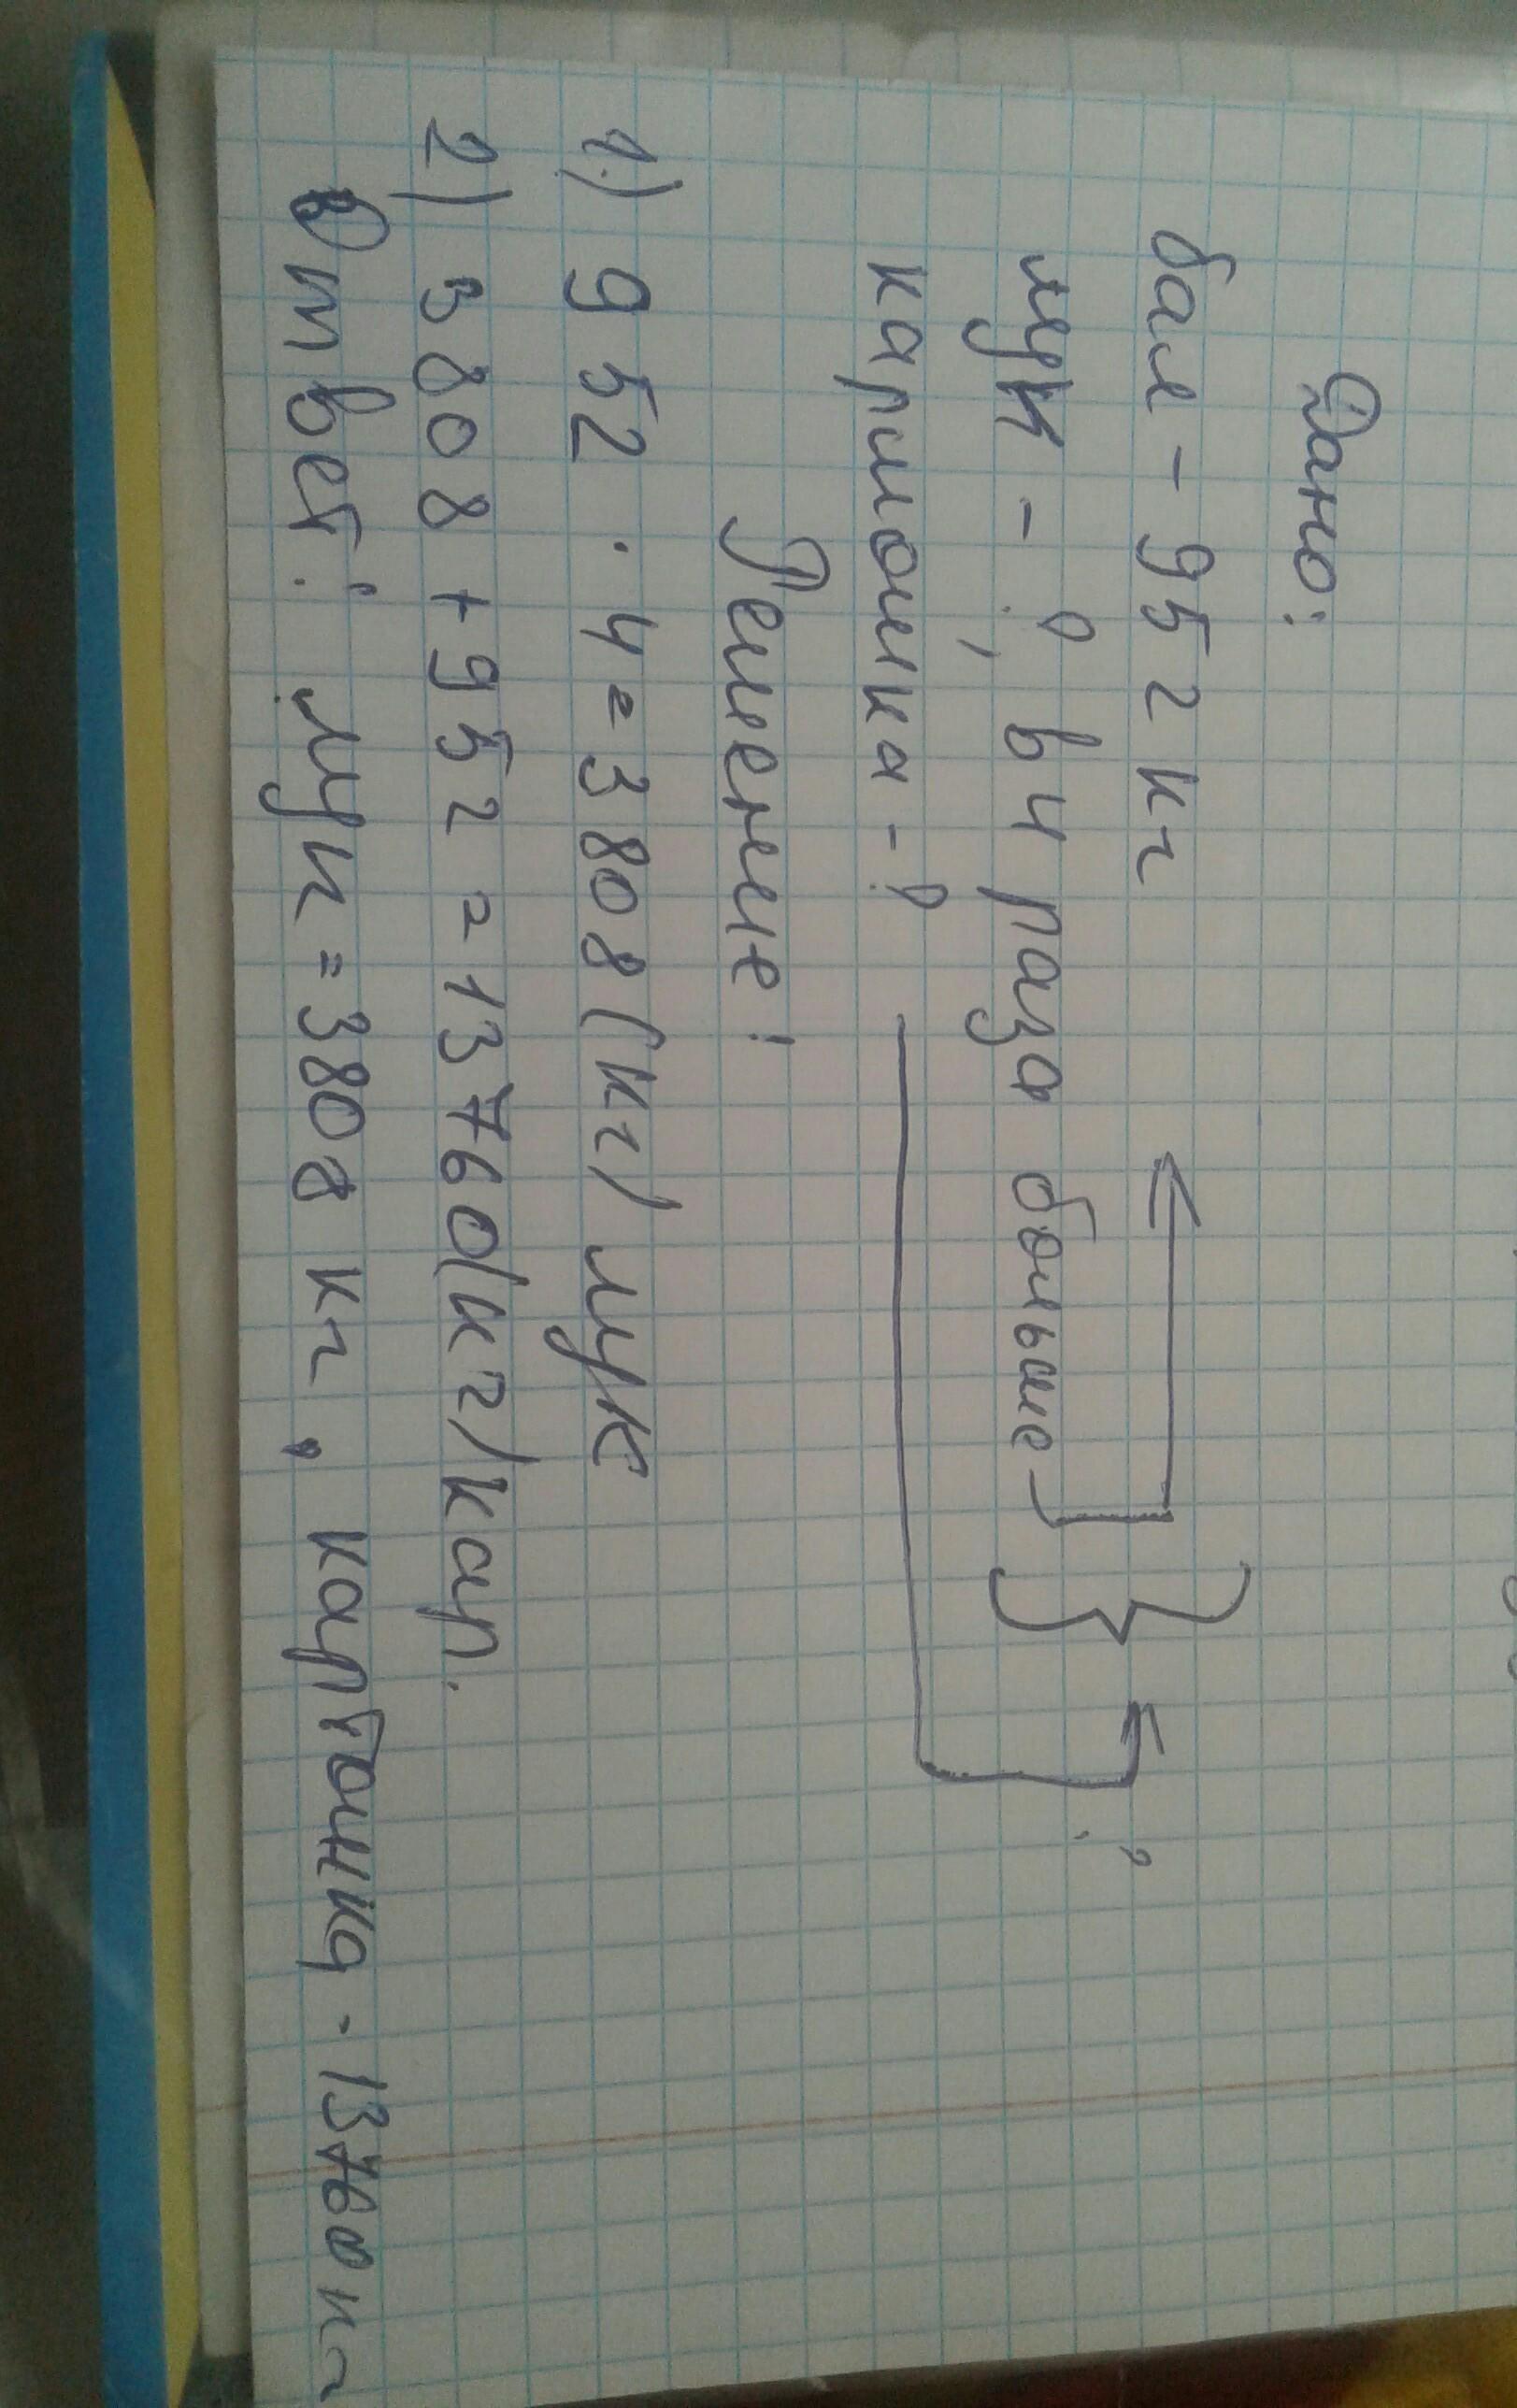 Дано:
бак - 952 кг
лук - ?, в 4 раза больше
картошка - ?
?
Решение:
1) 952 · 4 = 3808 (кг) лук
2) 3808 + 952 = 13760 (кг) кар.
Ответ: лук = 3808 кг, картошка - 13760 кг